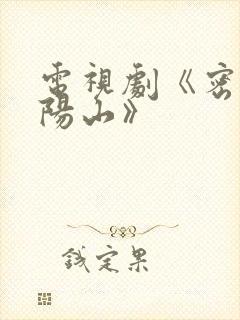 電視劇《密
陽山》
錢定果